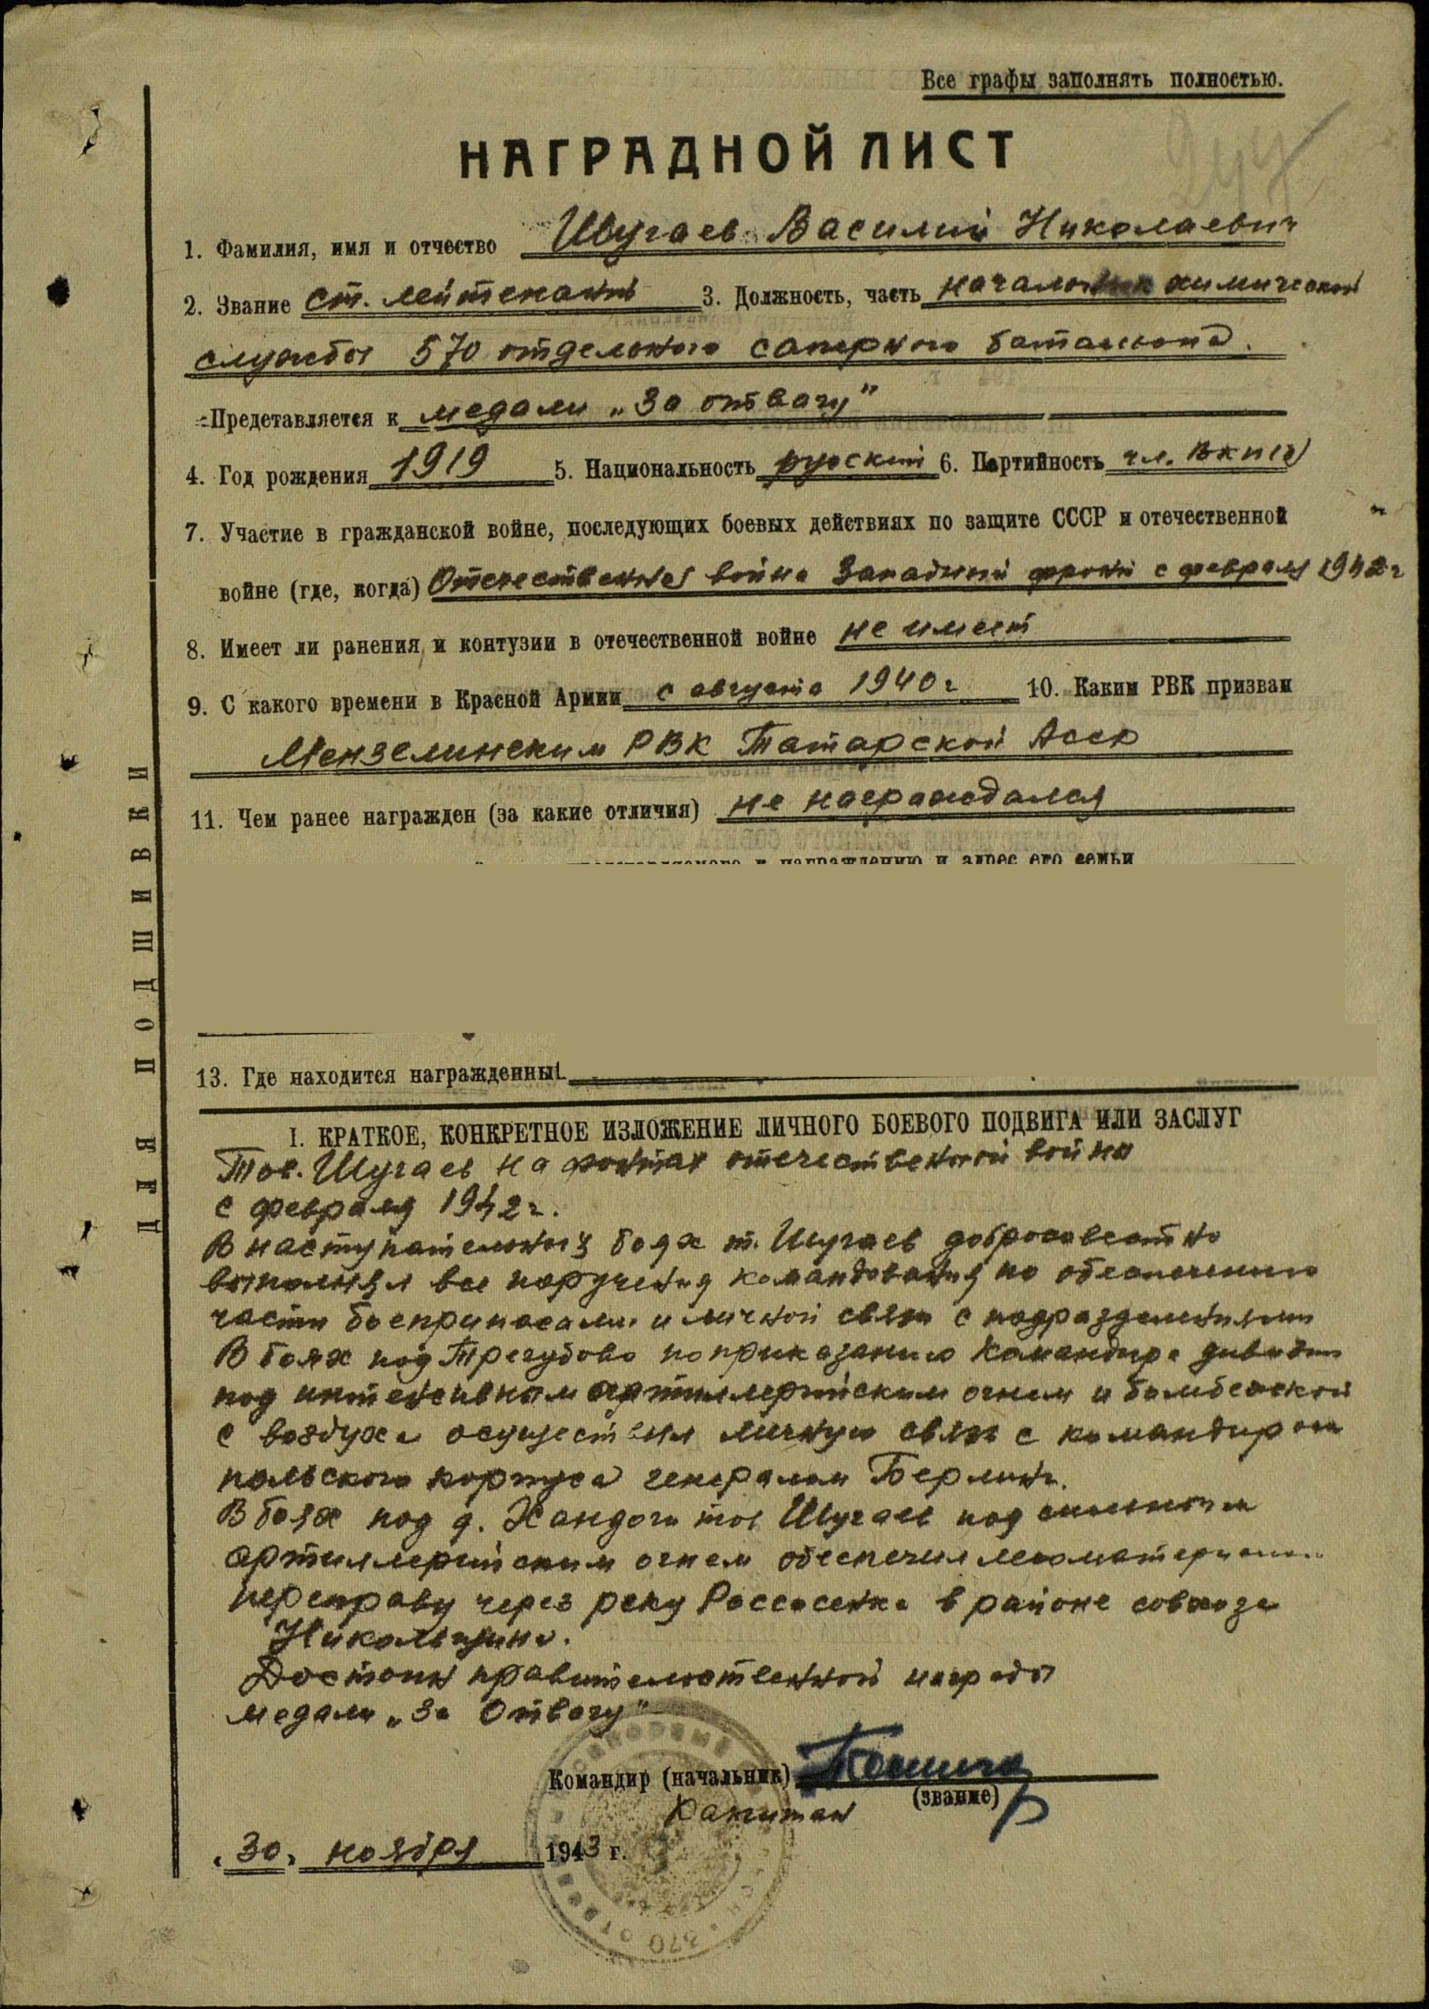 Все графы заполнять полностью.
НАГРАДНОЙ ЛИСТ
1. Фамилия, имя и отчество Шугаев Василий Николаевич
2. Звание ст. лейтенант 3. Должность, часть начальник химической
службы 570 отдельного саперного батальона.
Представляется к медали „За отвагу"
4. Год рождения 1919 5. Национальность русский 6. Партийность чл. ВКП(б)
7. Участие в гражданской войне, последующих боевых действиях по защите СССР и отечественной
войне (где, когда) Отечественная война Западный фронт с февраля 1942 г
8. Имеет ли ранения и контузии в отечественной войне не имеет
9. С какого времени в Красной Армии с августа 1940 г 10. Каким РВК призван
Мензелинским РВК Татарской Асср
11. Чем ранее награжден (за какие отличия) не награждался
представляемого к награждению и адрес его семьи
13. Где находится награжденный
I. КРАТКОЕ, КОНКРЕТНОЕ ИЗЛОЖЕНИЕ ЛИЧНОГО БОЕВОГО ПОДВИГА ИЛИ ЗАСЛУГ
Тов. Шугаев на фронтах отечественной войны
с февраля 1942 г.
В наступательных боях т. Шугаев добросовестно
выполнял все поручения командования по обеспечению
части боеприпасами и личной связи с подразделениями
В боях под Трегубово по приказанию командира дивизии
под интенсивным артиллерийским огнем и бомбежкой
с воздуха осуществил личную связь с командиром
польского корпуса генералом Берлинг.
В боях под д. Хандоги тов Шугаев под сильным
артиллерийским огнем обеспечил лесоматериалом
переправу через реку Россасенка в районе совхоза
Никольщина.
Достоин правительственной награды
медали „За Отвагу"
Командир (начальник)
(звание)
Капитан
„30" ноября 1943 г.
ДЛЯ ПОДШИВКИ